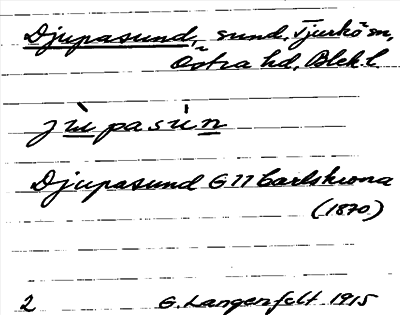 Djupasund, sund, Tjurkö sn,
Östra hd, Blek l.
jùpasún
Djupasund G 11 Carlskrona
(1870)
2 G. Langenfelt 1915